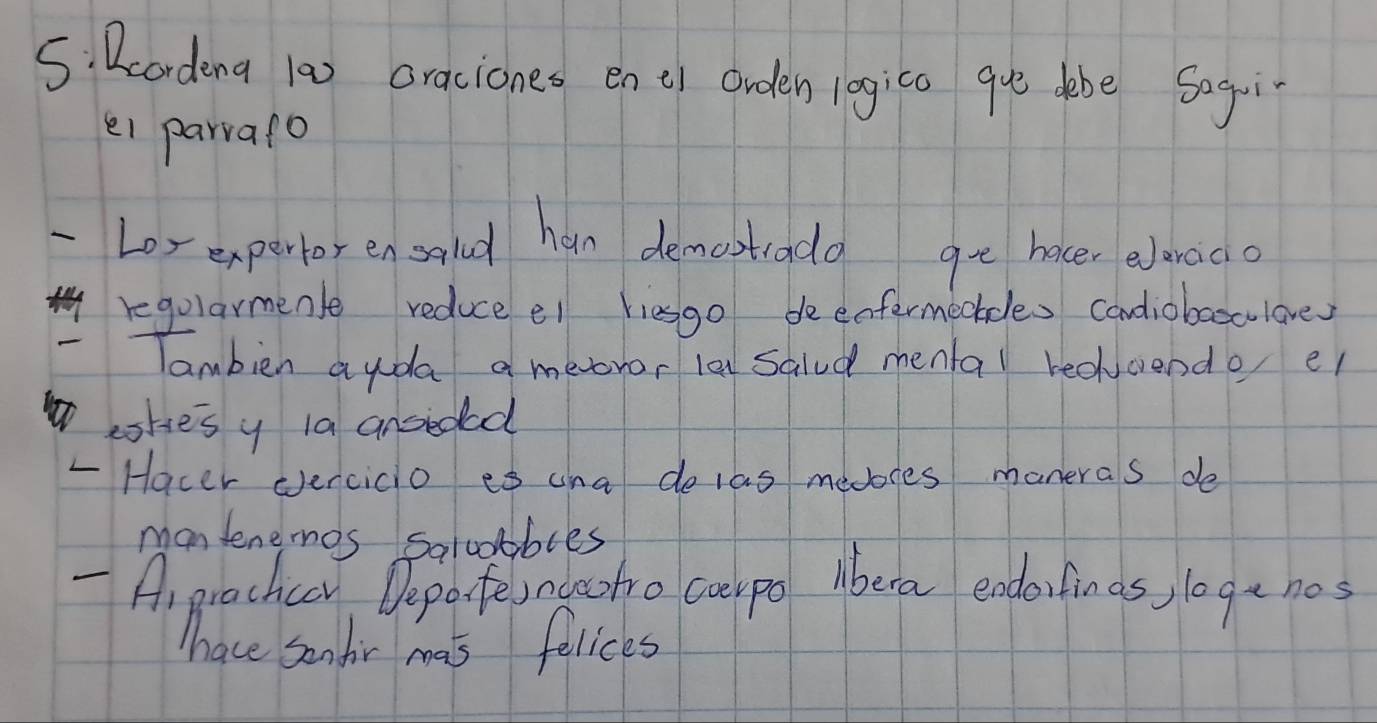 5. Reordena las oraciones en el orden logico que debe Seguir
el parrafo
- Los expertos en salud han demostrado que hacer ejercicio
regularmente reduce el riesgo de enfermedades cardiobasculares
- Tambien ayuda a mejorar la Salud mental reduciendo el
estrés y la ansiedad
- Hacer ejercicio es una de las mejores maneras de
mantenernos Saludables
- Al practicar Deporte, nuestro cuerpo libera endorfinas, lo que nos
hace sentir más felices